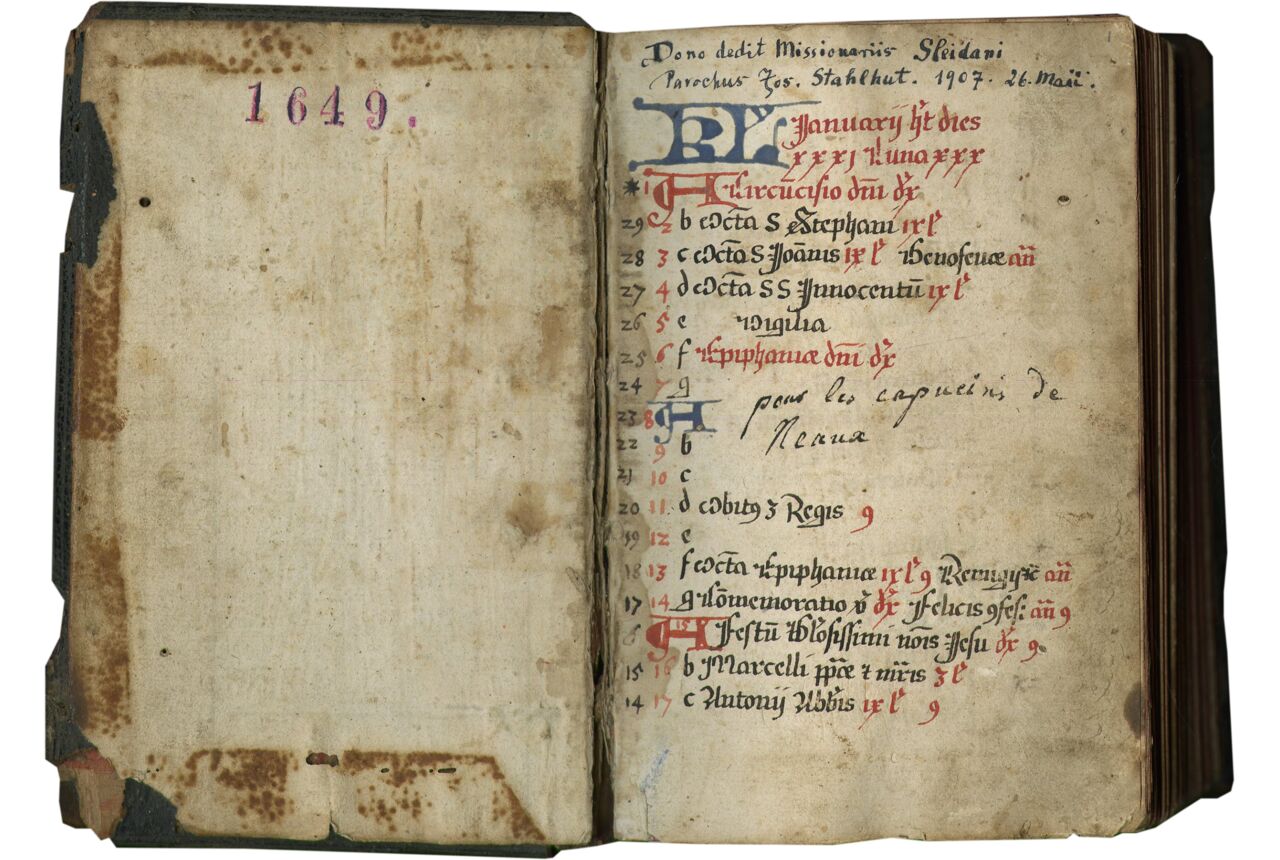 1649.
1
Dono dedit Missionariis Sleidani
Parochus Jos. Stahlhut. 1907. 26. Maii.
KL Januarij h̄t dies
xxxj Luna xxx
* 1 A Circūcisio dm̄i dx̄
29 2 b Octā S Stephani ix l̄
28 3 c Octā S Joānis ix l̄ Genofeuæ añ
27 4 d Octā SS Innocentū ix l̄
26 5 e Vigilia
25 6 f Epiphaniæ dm̄i dx̄
24 7 g
pour les capucins de
23 8 A
22 9 b
21 10 c
20 11 d Obitꝰ 3 Regis 9
19 12 e
18 13 f Octā Epiphaniæ ix l̄ 9 añ
17 14 g Cōmemoratio dx̄ Felicis 9fes: añ 9
15 A Festū Glōsissimi nōis Jesu dx̄ 9
15 16 b Marcelli pp̄æ ⁊ mr̄is 3 l̄
14 17 c Antonij Abb̄is ix l̄ 9